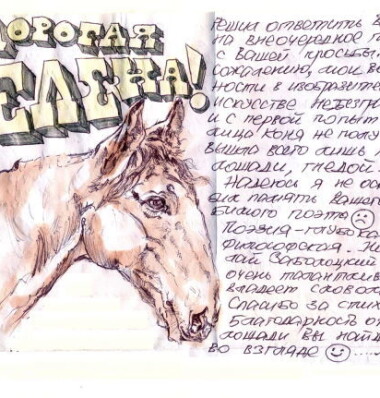 ДОРОГАЯ
ЕЛЕНА!
Решил ответить В
на внеочередное п
с Вашей просьбы
сожалению, мои во
ности в изобразите
искусстве небезгр
и с первой попыт
лица коня не полу
вышла всего лишь
лошади, гнедой.
Надеюсь я не ос
память Вашего
бимого поэта ☹
Поэзия-глубока
философская. Ни
лай Заболоцкий
очень талантлив
владеет словом
Спасибо за стих
Благодарность от
лошади Вы найд
во взгляде ☺.....